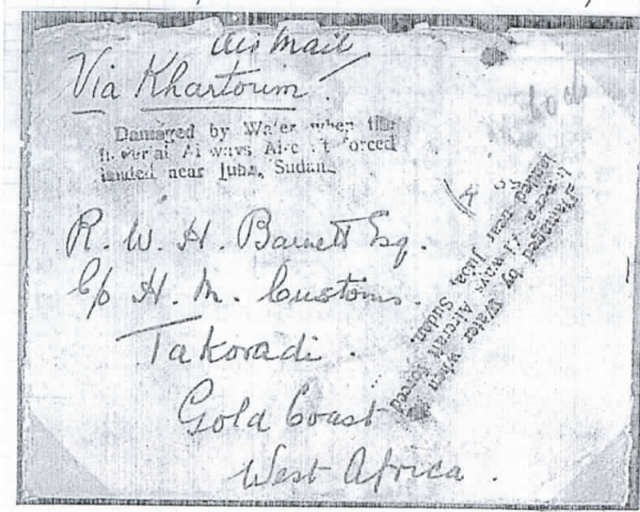 Air Mail
Via Khartoum
Damaged by Water when the
Imperial Airways Aircraft forced
landed near Juba, Sudan.
R. W. H. Barnett Esq.
C/o H. M. Customs.
Takoradi.
Gold Coast
West Africa.
Damaged by Water when
Imperial Airways Aircraft forced
landed near Juba, Sudan.